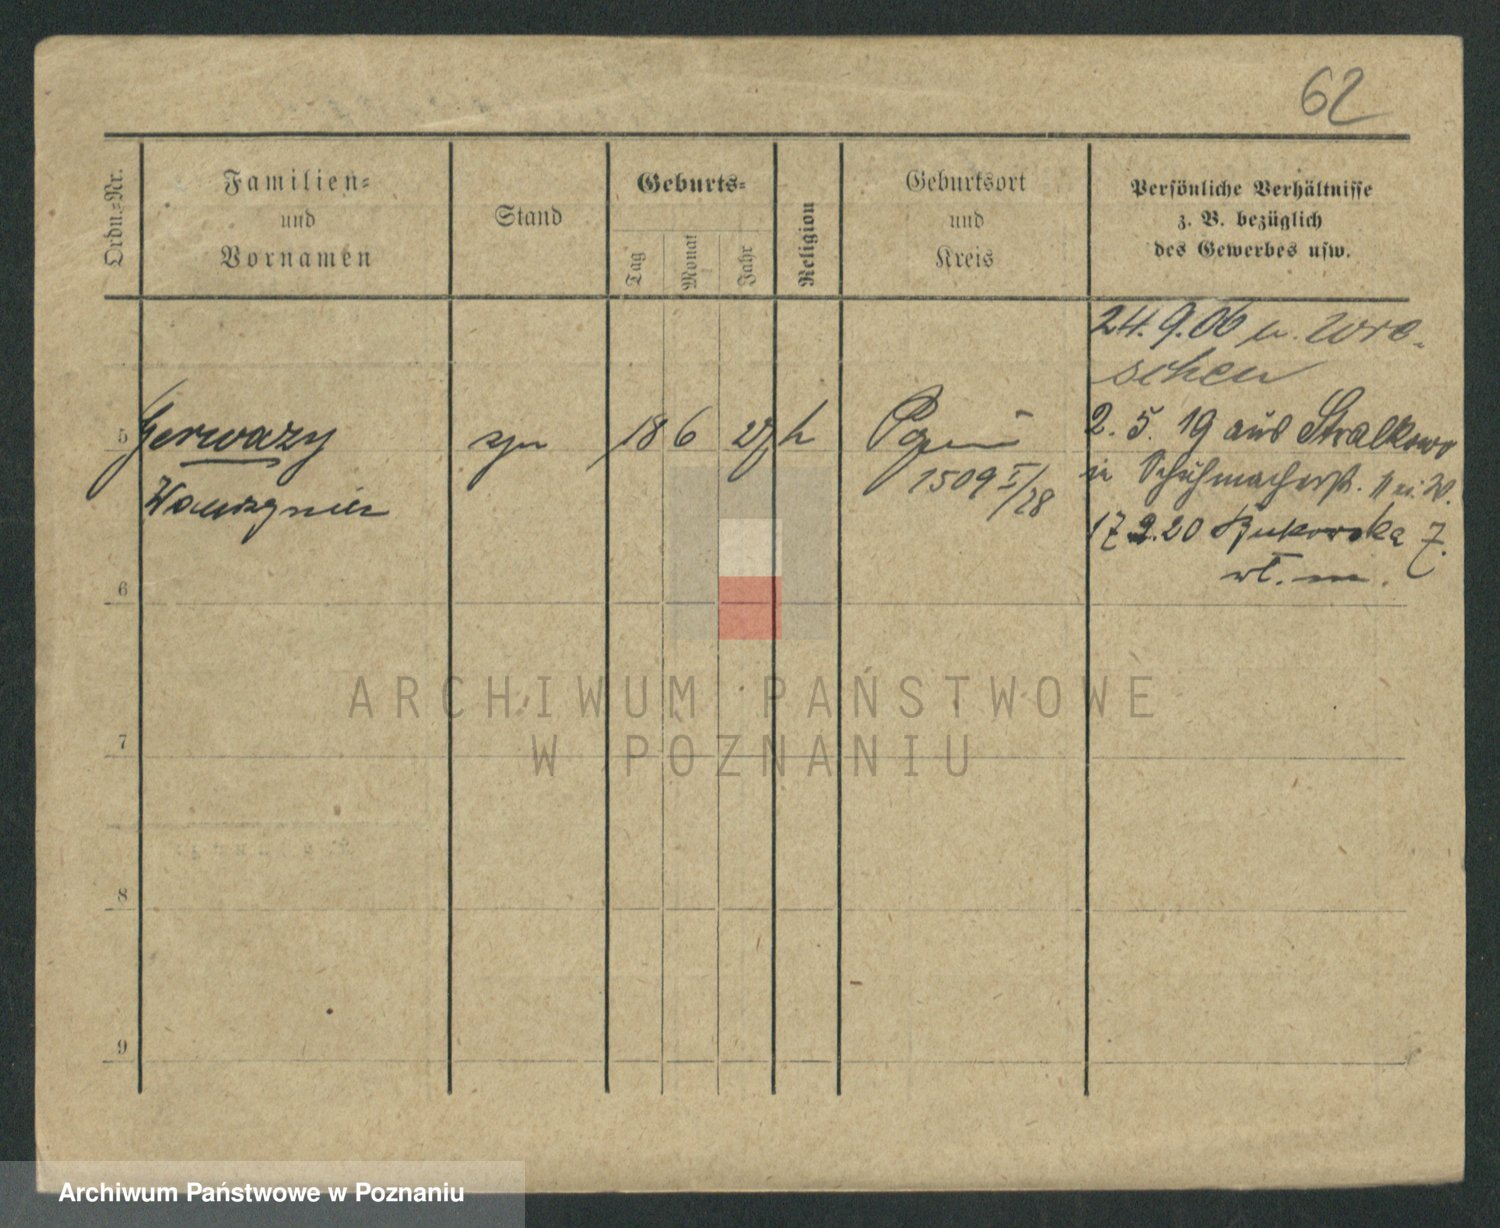 62
Ordn.-Nr.
Familien-
und
Vornamen
Stand
Geburts-
Tag
Monat
Jahr
Religion
Geburtsort
und
Kreis
Persönliche Verhältnisse
z. B. bezüglich
des Gewerbes usw.
24.9.06 n. Wre-
schen
5 Gerwazy syn 18 6 27 k
Wawrzyniec
1509 I/28
2. 5. 19 aus Stralkowo
Schuhmacherst. 11
17 2.20 Bukowska 7.
6
7
8
9
ARCHIWUM PAŃSTWOWE
W POZNANIU
Archiwum Państwowe w Poznaniu